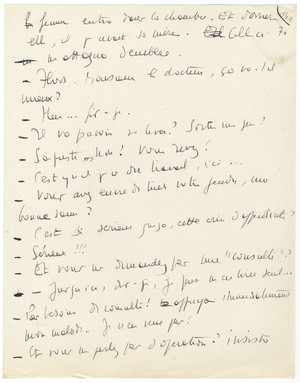 femme entra dans la chambre. Et derrière
elle, il y avait sa mère. Celle-ci
m'attaqua d'emblée.
— Alors, Monsieur le docteur, ça va-t-il
mieux?
— Heu... fis-je.
— Il va pouvoir se lever? Sortir un peu?
— Sapristi, Non! Vous rêvez!
— C'est qu'il y a du travail, ici...
— Vous avez envie de tuer votre gendre, ma
bonne dame?
— C'est si sérieux que ça, cette crise d'appendicite?
— Sérieux!!!
— Et vous ne demandez pas une "consulte"?
— Jusqu'ici, dis-je, je puis m'en tirer seul...
— Pas besoin de consulte!
mon malade. Je n'en veux pas!
— Et vous ne parlez pas d'opération? insista